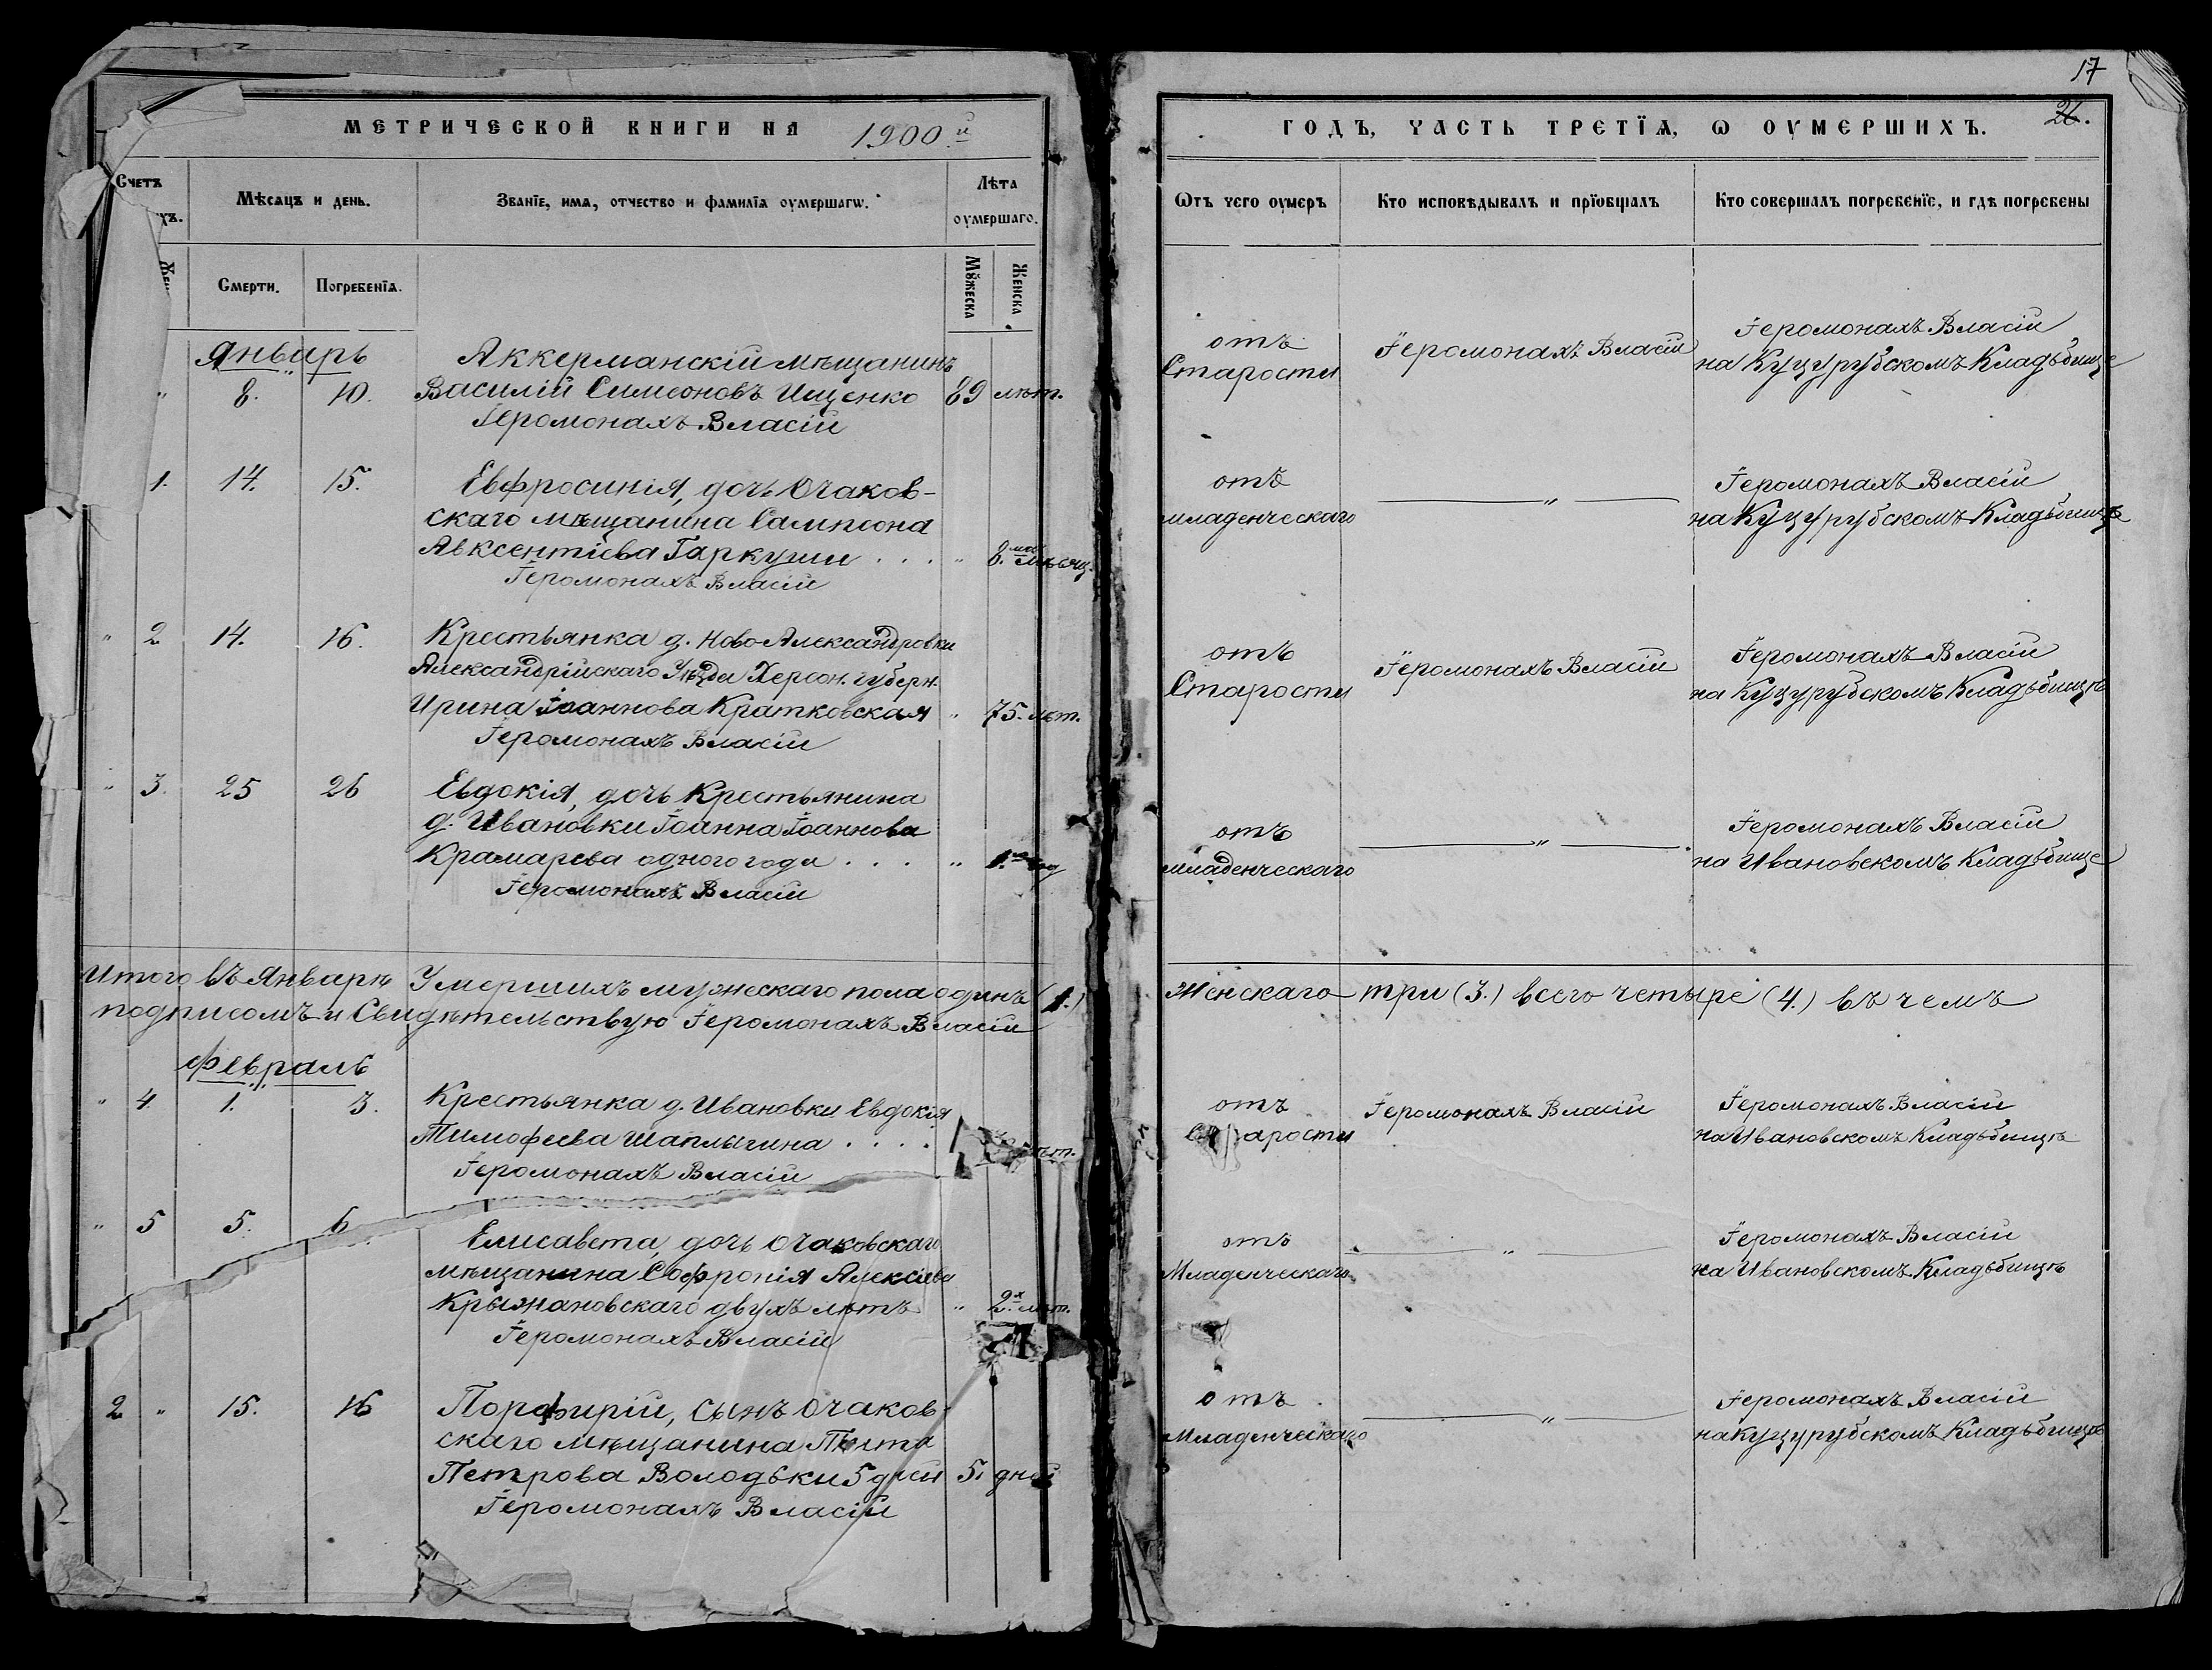 МЕТРИЧЕСКОЙ КНИГИ НА 1900й
Счетъ
Мѣсяцъ и день.
Званїе, имя, отчество и фамилїя оумершагѡ.
Лѣта оумершаго.
Смерти.
Погребенїя.
Мꙋжеска
Женска
Январь
" 8. 10. Аккерманскій мѣщанинъ
Василій Симеоновъ Ищенко 89 лѣт.
Іеромонахъ Власій
1. 14. 15. Евфросинія, дочь Очаков-
скаго мѣщанина Сампсона
Авксентіева Гаркуши . . . " 8. мѣсяц.
Іеромонахъ Власій
" 2 14. 16. Крестьянка д. Ново-Александровки
Александрійскаго Уѣзда Херсон. губерн.
Ирина Іоаннова Кратковская " 75. лѣт.
Іеромонахъ Власій
" 3. 25 26 Евдокія, дочь Крестьянина
д. Ивановки Іоанна Іоаннова
Крамарева одного года . . . " 1. год
Іеромонахъ Власій
Итого въ Январѣ Умершихъ мужескаго пола одинъ (1.)
подписомъ и Свидѣтельствую Іеромонахъ Власій
Февраль
" 4. 1. 3. Крестьянка д. Ивановки Евдокія
Тимофеева Шаплыгина . . . . лѣт.
Іеромонахъ Власій
" 5 5. 6 Елисавета, дочь Очаковскаго
мѣщанина Софронія Алексіева
Крыжановскаго двухъ лѣтъ " 2х лѣт.
Іеромонахъ Власій
2 " 15. 16 Порфирій, сынъ Очаков-
скаго мѣщанина
Петрова Володьки 5 дней 5 дней
Іеромонахъ Власій
17
26.
ГОДЪ, ЧАСТЬ ТРЕТЇЯ, Ѡ ОУМЕРШИХЪ.
Ѿтъ чего оумеръ
Кто исповѣдывалъ и прїобщалъ
Кто совершалъ погребенїе, и гдѣ погребены
отъ Іеромонахъ Власій Іеромонахъ Власій
Старости на Куцурубскомъ Кладьбище
отъ " Іеромонахъ Власій
младенческаго на Куцурубскомъ Кладьбищѣ
отъ Іеромонахъ Власій Іеромонахъ Власій
Старости на Куцурубскомъ Кладьбищѣ
отъ " Іеромонахъ Власій
младенческаго на Ивановскомъ Кладьбище
Женскаго три (3.) всего четыре (4.) въ чемъ
отъ Іеромонахъ Власій Іеромонахъ Власій
старости на Ивановскомъ Кладьбищѣ
отъ " Іеромонахъ Власій
Младенческаго на Ивановскомъ Кладьбищѣ
отъ " Іеромонахъ Власій
Младенческаго на Куцурубскомъ Кладьбищѣ